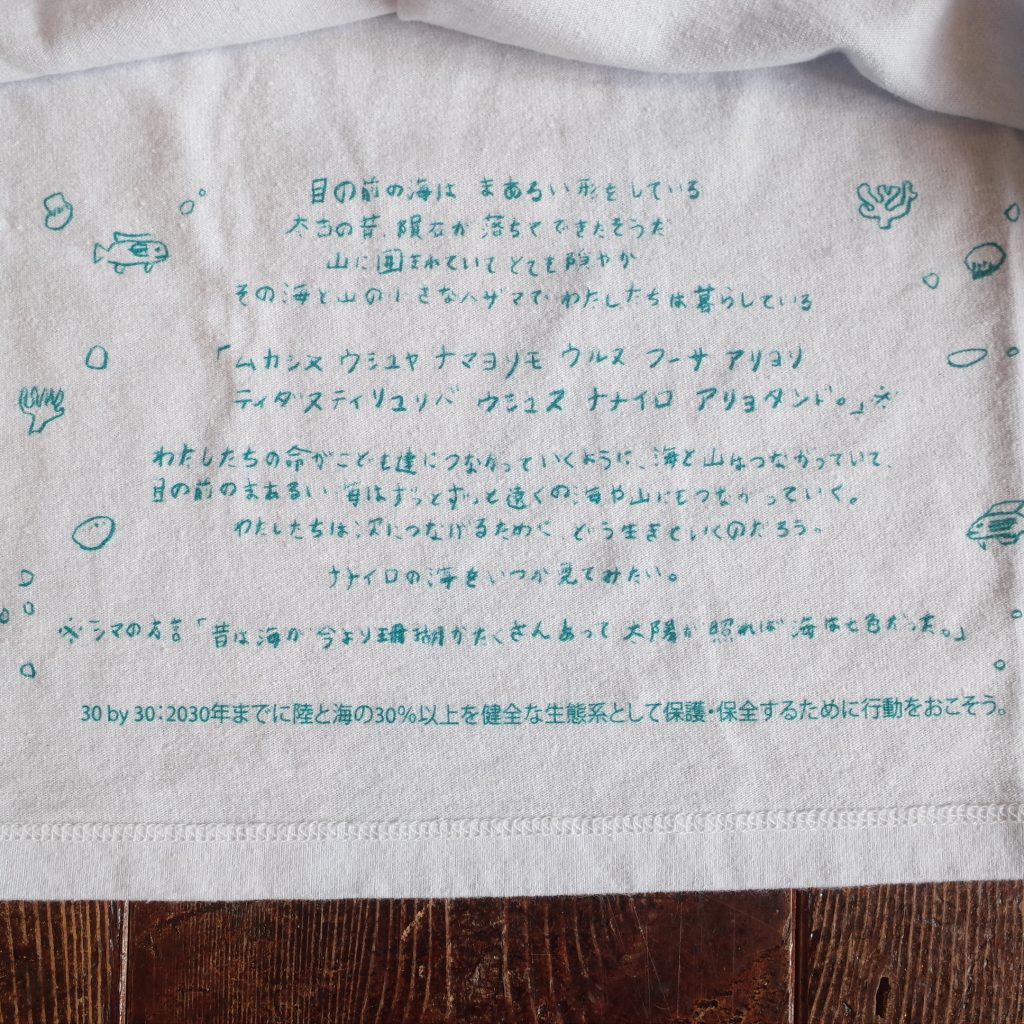 目の前の海は まあるい形をしている
太古の昔、隕石が落ちてできたそうだ
山に囲まれていてとても穏やか
その海と山の小さなハザマでわたしたちは暮らしている
「ムカシヌ ウシュヤ ナマヨリモ ウルヌ フーサ アリヨリ
ティダヌティリュリバ ウシュヌ ナナイロ アリョタンド。」※
わたしたちの命がこども達につながっていくように、海と山はつながっていて、
目の前のまあるい海はずっとずっと遠くの海や山にもつながっていく。
わたしたちは次につなげるために、どう生きていくのだろう。
ナナイロの海をいつか見てみたい。
※シマの方言「昔は海が今より珊瑚がたくさんあって太陽が照れば海は七色だった。」
30 by 30：2030年までに陸と海の30％以上を健全な生態系として保護・保全するために行動をおこそう。